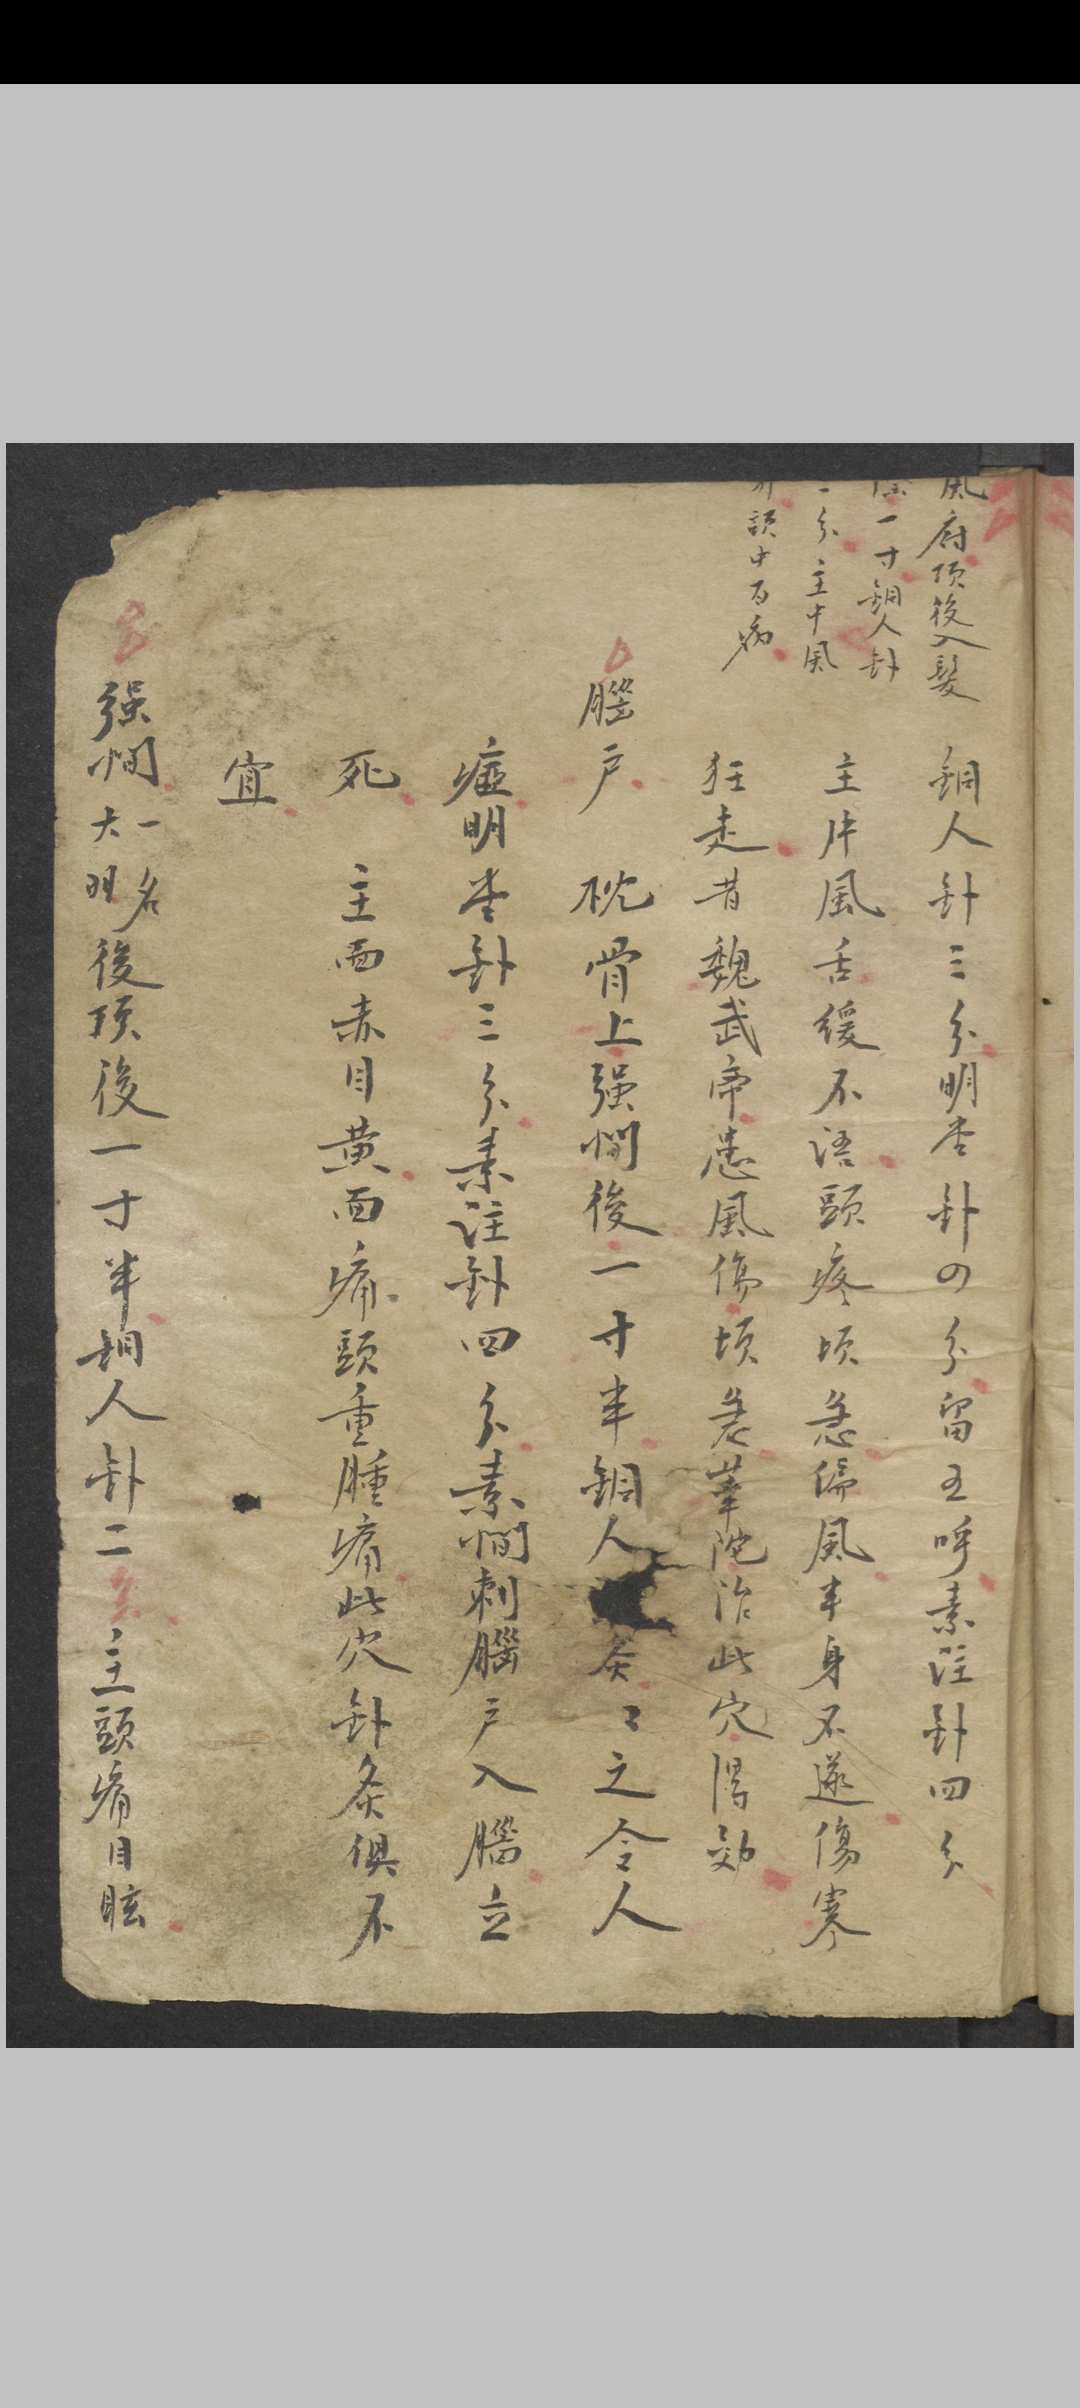 風府項後入髮
一寸銅人針
一分主中風
頭中百病
銅人針三分明堂針四分留五呼素註針四分
主中風舌緩不語頭疼項急偏風半身不遂傷寒
狂走昔魏武帝患風傷項急華陀治此穴得効
腦户
枕骨上强間後一寸半銅人灸〻之令人
瘂明堂針三分素註針四分素問刺腦户入腦立
死 主面赤目黄面痛頭重腫痛此穴針灸俱不
宜
强間一名大明後項後一寸半銅人針二分主頭痛目眩